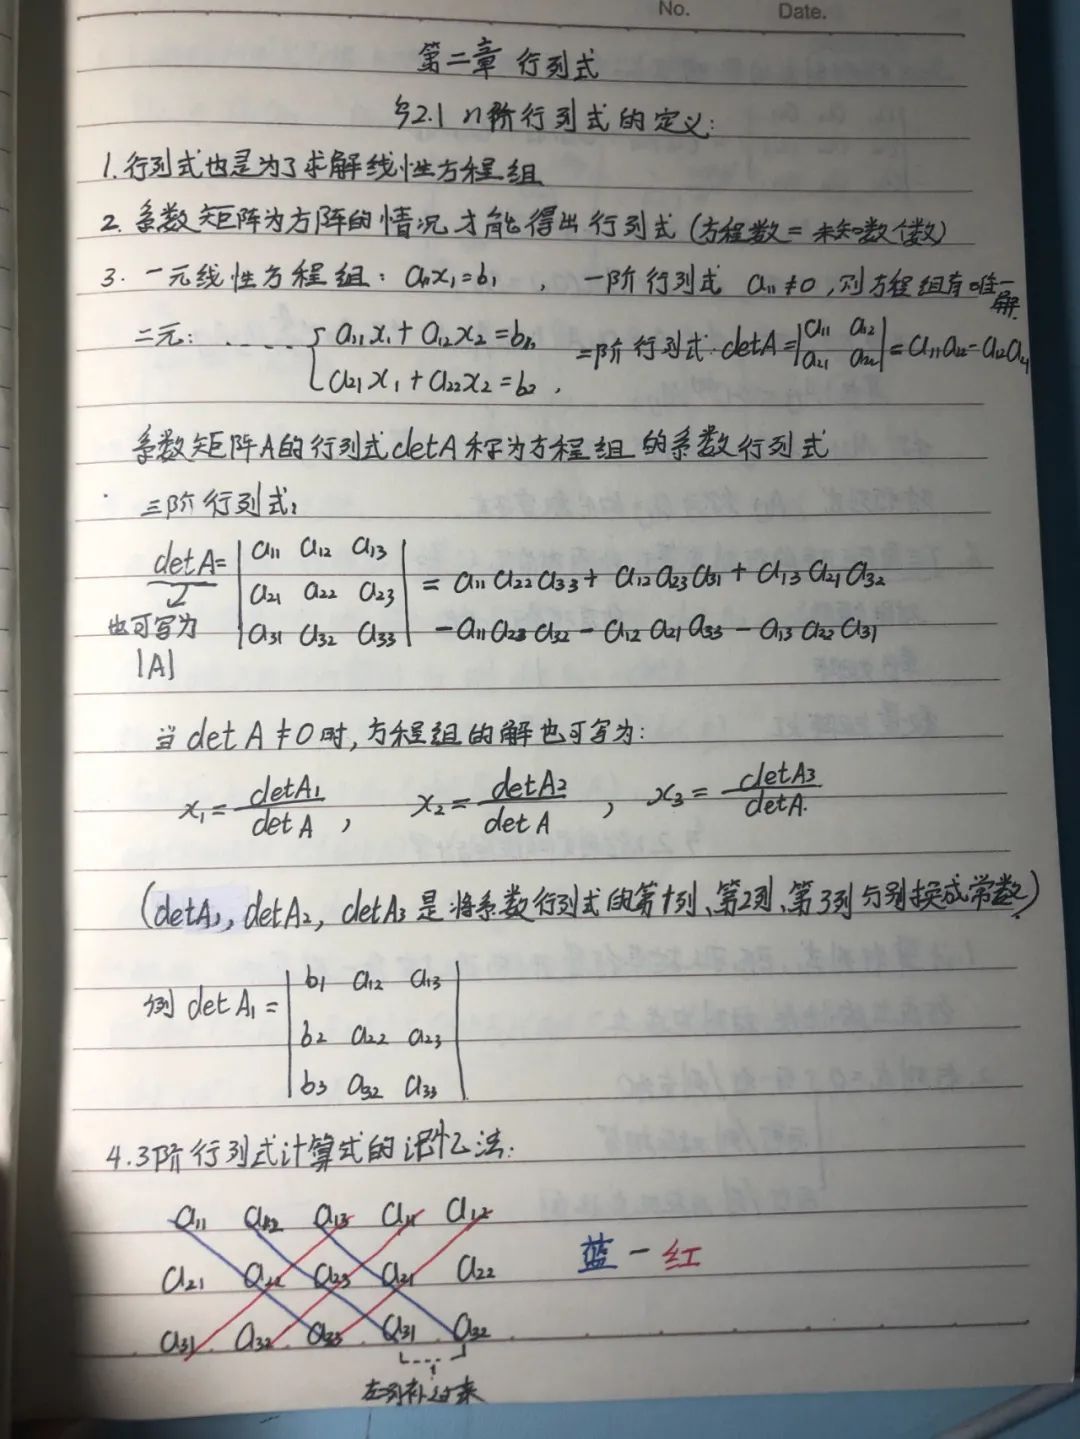 No. Date.
第二章 行列式
§2.1 n阶行列式的定义:
1.行列式也是为了求解线性方程组
2. 系数矩阵为方阵的情况才能得出行列式 (方程数 = 未知数个数)
3. 一元线性方程组: a₁₁x₁=b₁ , 一阶行列式 a₁₁≠0,则方程组有唯一解.
二元: ..... { a₁₁x₁+a₁₂x₂=b₁, 二阶行列式: detA=|a₁₁ a₁₂
a₂₁ a₂₂|=a₁₁a₂₂-a₁₂a₂₁
a₂₁x₁+a₂₂x₂=b₂,
系数矩阵A的行列式detA称为方程组的系数行列式
三阶行列式:
detA= | a₁₁ a₁₂ a₁₃ |
| a₂₁ a₂₂ a₂₃ | = a₁₁a₂₂a₃₃+ a₁₂a₂₃a₃₁+ a₁₃a₂₁a₃₂
| a₃₁ a₃₂ a₃₃ | -a₁₁a₂₃a₃₂-a₁₂a₂₁a₃₃-a₁₃a₂₂a₃₁
也可写为
|A|
当detA≠0时,方程组的解也可写为:
x₁=detA₁/detA, x₂=detA₂/detA, x₃=detA₃/detA.
(detA₁, detA₂, detA₃是将系数行列式的第1列、第2列、第3列分别换成常数)
例 detA₁= | b₁ a₁₂ a₁₃ |
| b₂ a₂₂ a₂₃ |
| b₃ a₃₂ a₃₃ |
4.3阶行列式计算式的记忆法:
a₁₁ a₁₂ a₁₃ a₁₁ a₁₂
a₂₁ a₂₂ a₂₃ a₂₁ a₂₂ 蓝-红
a₃₁ a₃₂ a₃₃ a₃₁ a₃₂
左列补过来